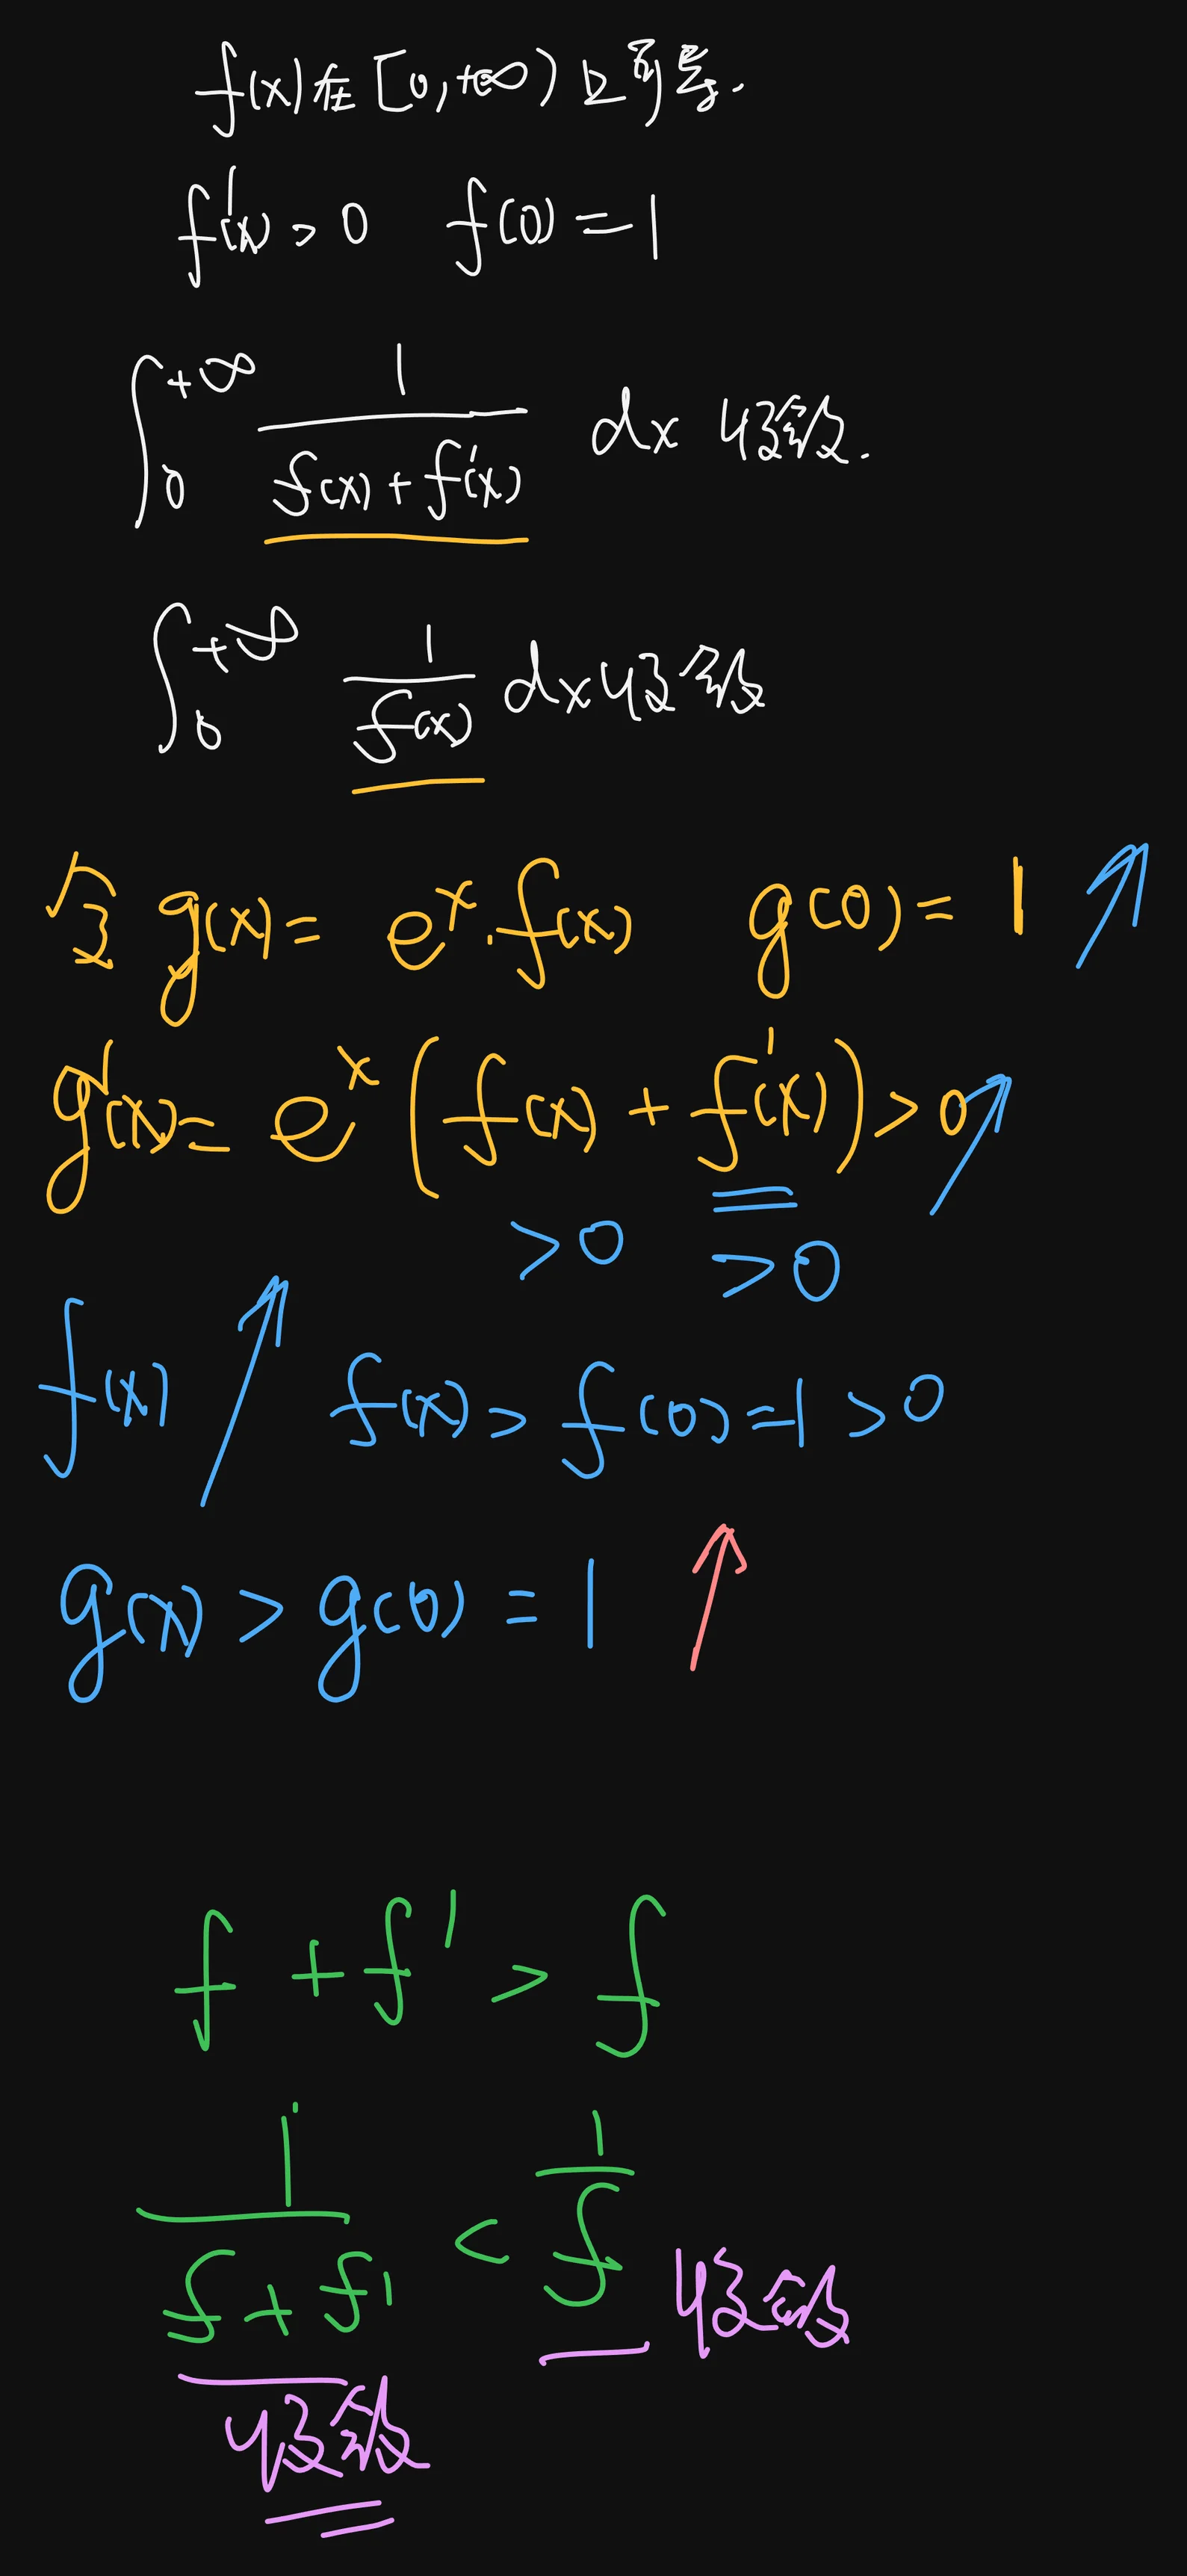 f(x)在[0,+∞)上可导.
f'(x)>0 f(0)=1
∫₀^{+∞} 1/(f(x)+f'(x)) dx 收敛.
∫₀^{+∞} 1/f(x) dx 收敛
令 g(x)= e^x·f(x) g(0)=1
g'(x)= e^x (f(x)+f'(x))>0
>0 >0
f(x) f(x)>f(0)=1>0
g(x)>g(0)=1
f+f'>f
1/(f+f') < 1/f 收敛
收敛